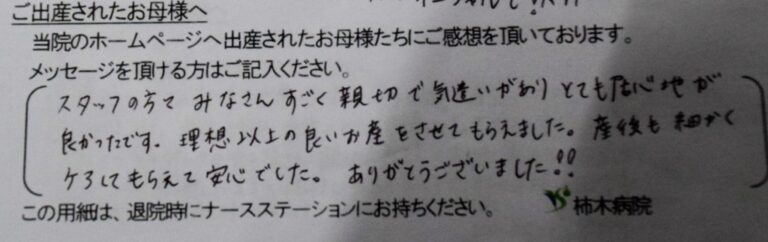 ご出産されたお母様へ
当院のホームページへ出産されたお母様たちにご感想を頂いております。
メッセージを頂ける方はご記入ください。
スタッフの方々 みなさんすごく親切で気遣いがありとても居心地が
良かったです。理想以上の良いお産をさせてもらえました。産後も細かく
ケアしてもらえて安心でした。ありがとうございました!!
この用紙は、退院時にナースステーションにお持ちください。 柿木病院